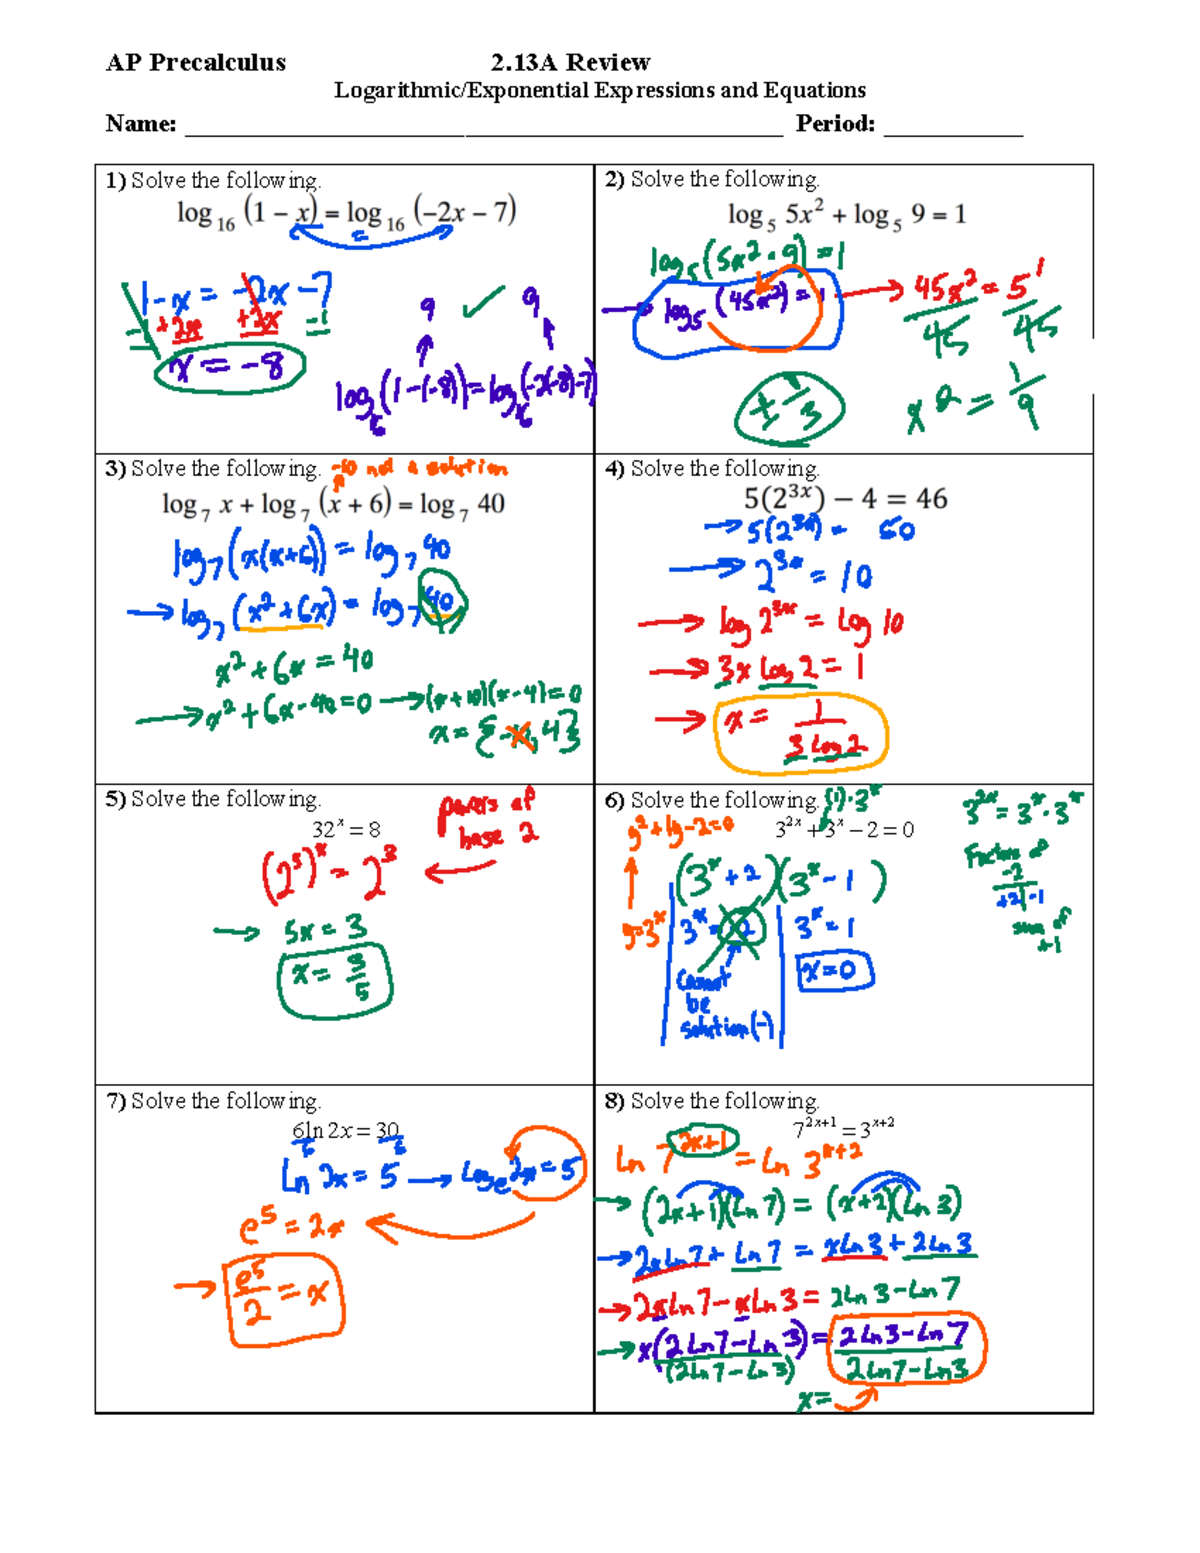 AP Precalculus 2.13A Review
Logarithmic/Exponential Expressions and Equations
Name: ____________ Period: ____________
1) Solve the following.
log₁₆ (1 − x) = log₁₆ (−2x − 7)
=
1-x = -2x -7
-1 +2x +2x -1
x = -8
9 ✓ 9
log₁₆(1-(-8)) = log₁₆(-2(-8)-7)
2) Solve the following.
log₅ 5x² + log₅ 9 = 1
log₅(5x² · 9) = 1
→ log₅ (45x²) = 1 → 45x² = 5¹
45 45
x² = 1/9
± 1/3
3) Solve the following. -10 not a solution
log₇ x + log₇ (x + 6) = log₇ 40
log₇(x(x+6)) = log₇ 40
→ log₇ (x² + 6x) = log₇ 40
x² + 6x = 40
→ x² + 6x - 40 = 0 → (x+10)(x-4) = 0
x = { , 4}
4) Solve the following.
5(2³ˣ) − 4 = 46
→ 5(2³ˣ) = 50
→ 2³ˣ = 10
→ log 2³ˣ = log 10
→ 3x log 2 = 1
→ x = 1/(3 log 2)
5) Solve the following.
32ˣ = 8
powers of
base 2
(2⁵)ˣ = 2³ ←
→ 5x = 3
x = 3/5
6) Solve the following. (1)·3ˣ
3²ˣ + 3ˣ − 2 = 0
y² + 1y - 2 = 0
↑
y = 3ˣ
(3ˣ + 2)(3ˣ - 1)
3ˣ = -2 3ˣ = 1
cannot
be
solution (-)
x = 0
3²ˣ = 3ˣ · 3ˣ
Factors of
-2
+2 | -1
sum of
+1
7) Solve the following.
6ln 2x = 30
6 6
ln 2x = 5 → logₑ 2x = 5
e⁵ = 2x ←
→ e⁵/2 = x
8) Solve the following.
7²ˣ⁺¹ = 3ˣ⁺²
ln 7²ˣ⁺¹ = ln 3ˣ⁺²
→ (2x+1)(ln 7) = (x+2)(ln 3)
→ 2x ln 7 + ln 7 = x ln 3 + 2 ln 3
→ 2x ln 7 - x ln 3 = 2 ln 3 - ln 7
→ x(2 ln 7 - ln 3) = 2 ln 3 - ln 7
(2 ln 7 - ln 3) 2 ln 7 - ln 3
x =